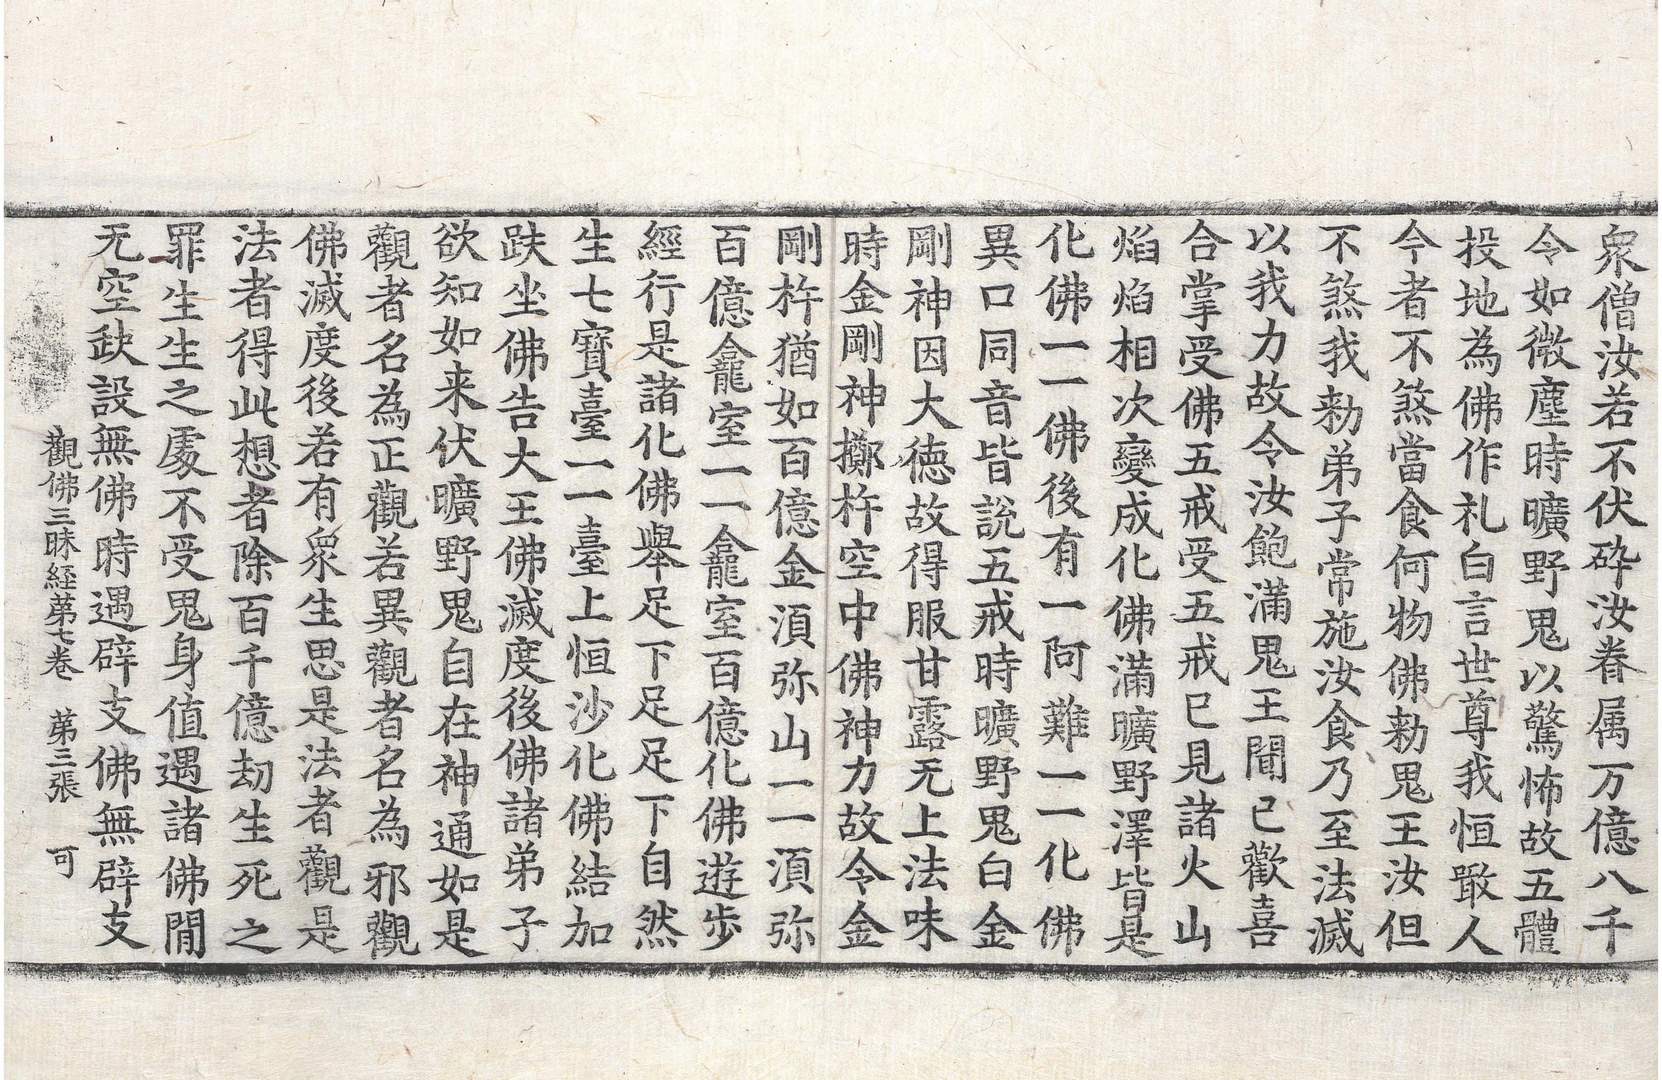 衆僧汝若不伏碎汝眷属万億八千
令如微塵時曠野鬼以驚怖故五體
投地為佛作礼白言世尊我恒噉人
今者不煞當食何物佛勑鬼王汝但
不煞我勑弟子常施汝食乃至法滅
以我力故令汝飽滿鬼王聞已歡喜
合掌受佛五戒受五戒已見諸火山
焰焰相次變成化佛滿曠野澤皆是
化佛一一佛後有一阿難一一化佛
異口同音皆說五戒時曠野鬼白金
剛神因大徳故得服甘露无上法味
時金剛神擲杵空中佛神力故令金
剛杵猶如百億金湏弥山一一湏弥
百億龕室一一龕室百億化佛遊步
經行是諸化佛舉足下足足下自然
生七寳臺一一臺上恒沙化佛結加
趺坐佛告大王佛滅度後佛諸弟子
欲知如来伏曠野鬼自在神通如是
觀者名為正觀若異觀者名為邪觀
佛滅度後若有衆生思是法者觀是
法者得此想者除百千億劫生死之
罪生生之處不受鬼身值遇諸佛閒
无空缺設無佛時遇辟支佛無辟支
觀佛三昧経苐七卷 苐三張 可